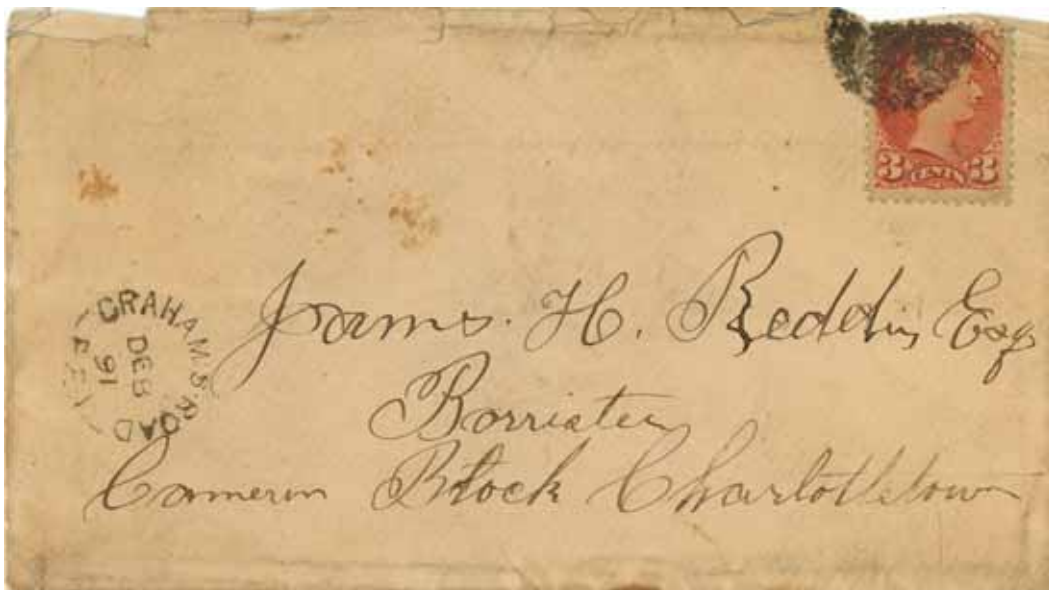 3 CENTS 3
GRAHAM'S ROAD
DE 8
91
P.E.I
James. H. Reddin Esq
Barrister
Cameron Block Charlottetown